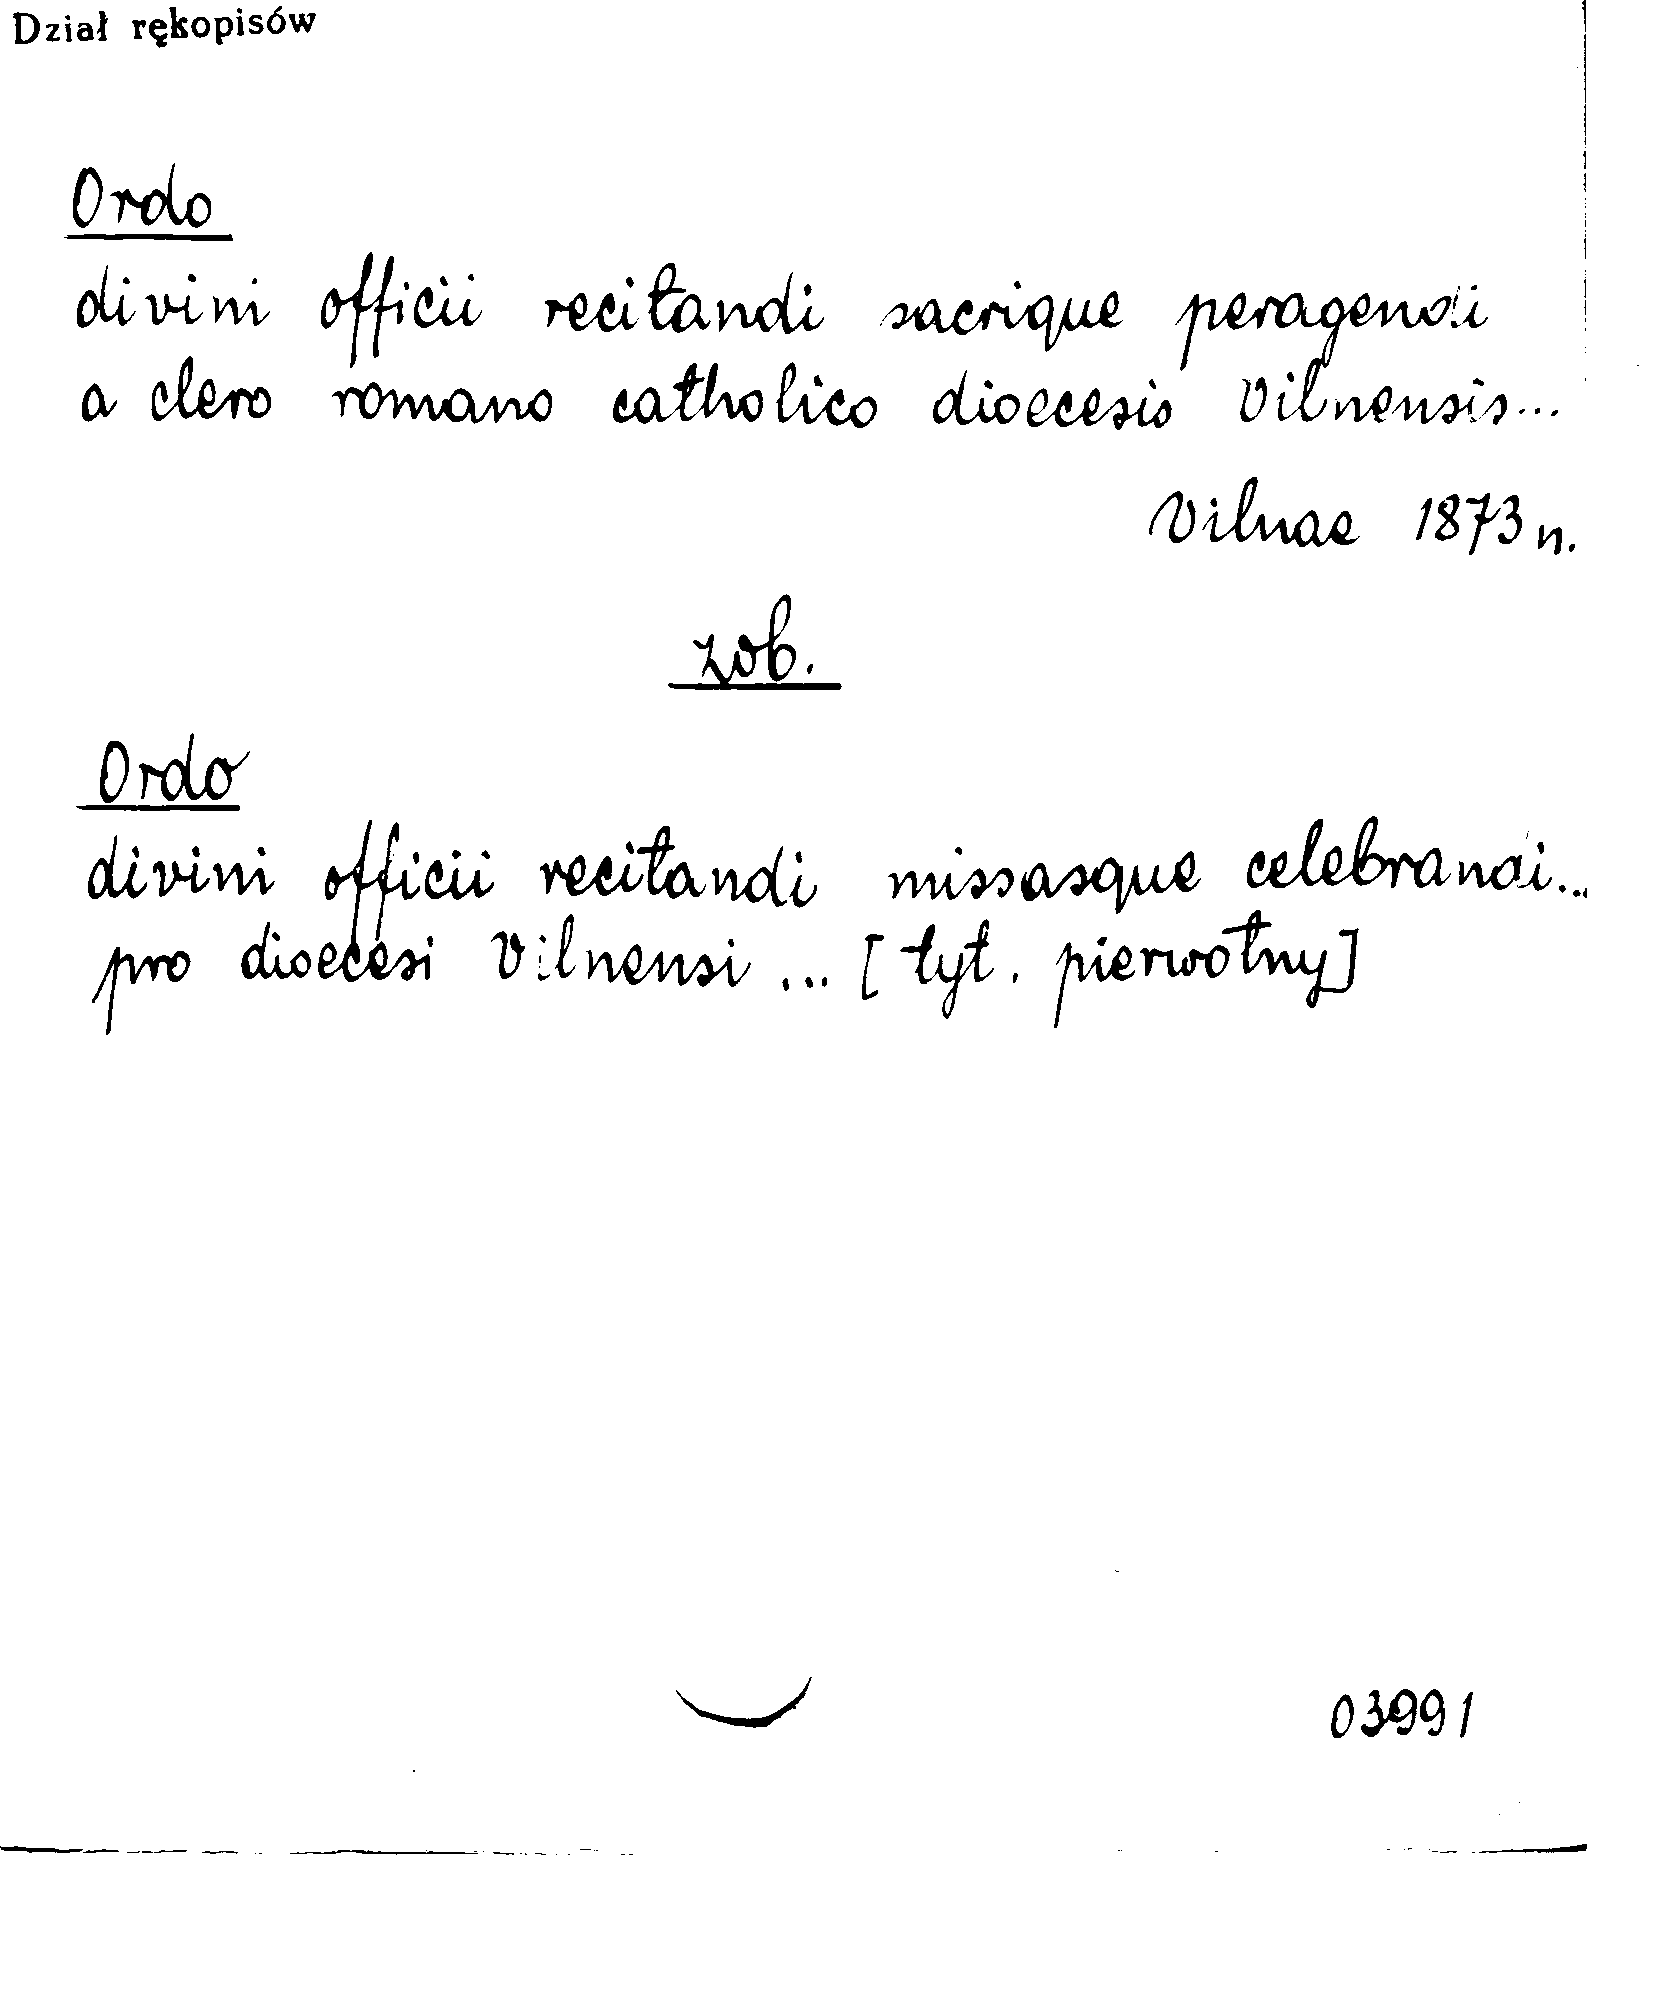 Dział rękopisów
Ordo
divini officii recitandi sacrique peragendi
a clero romano catholico dioecesis Vilnensis...
Vilnae 1873 n.
zob.
Ordo
divini officii recitandi missasque celebrandi...
pro dioecesi Vilnensi ... [tyt. pierwotny]
03991